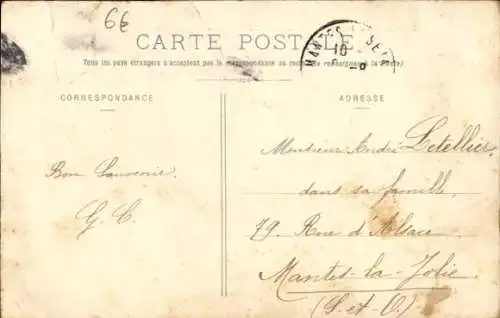 6€
CARTE POSTALE
Tous les pays étrangers n'acceptent pas la correspondance au recto (se renseigner à la Poste)
CORRESPONDANCE
ADRESSE
Bon Souvenir.
G. C.
Monsieur André Letellier
dans sa famille
79. Rue d'Alsace
Mantes-la-Jolie
(S. et O.)